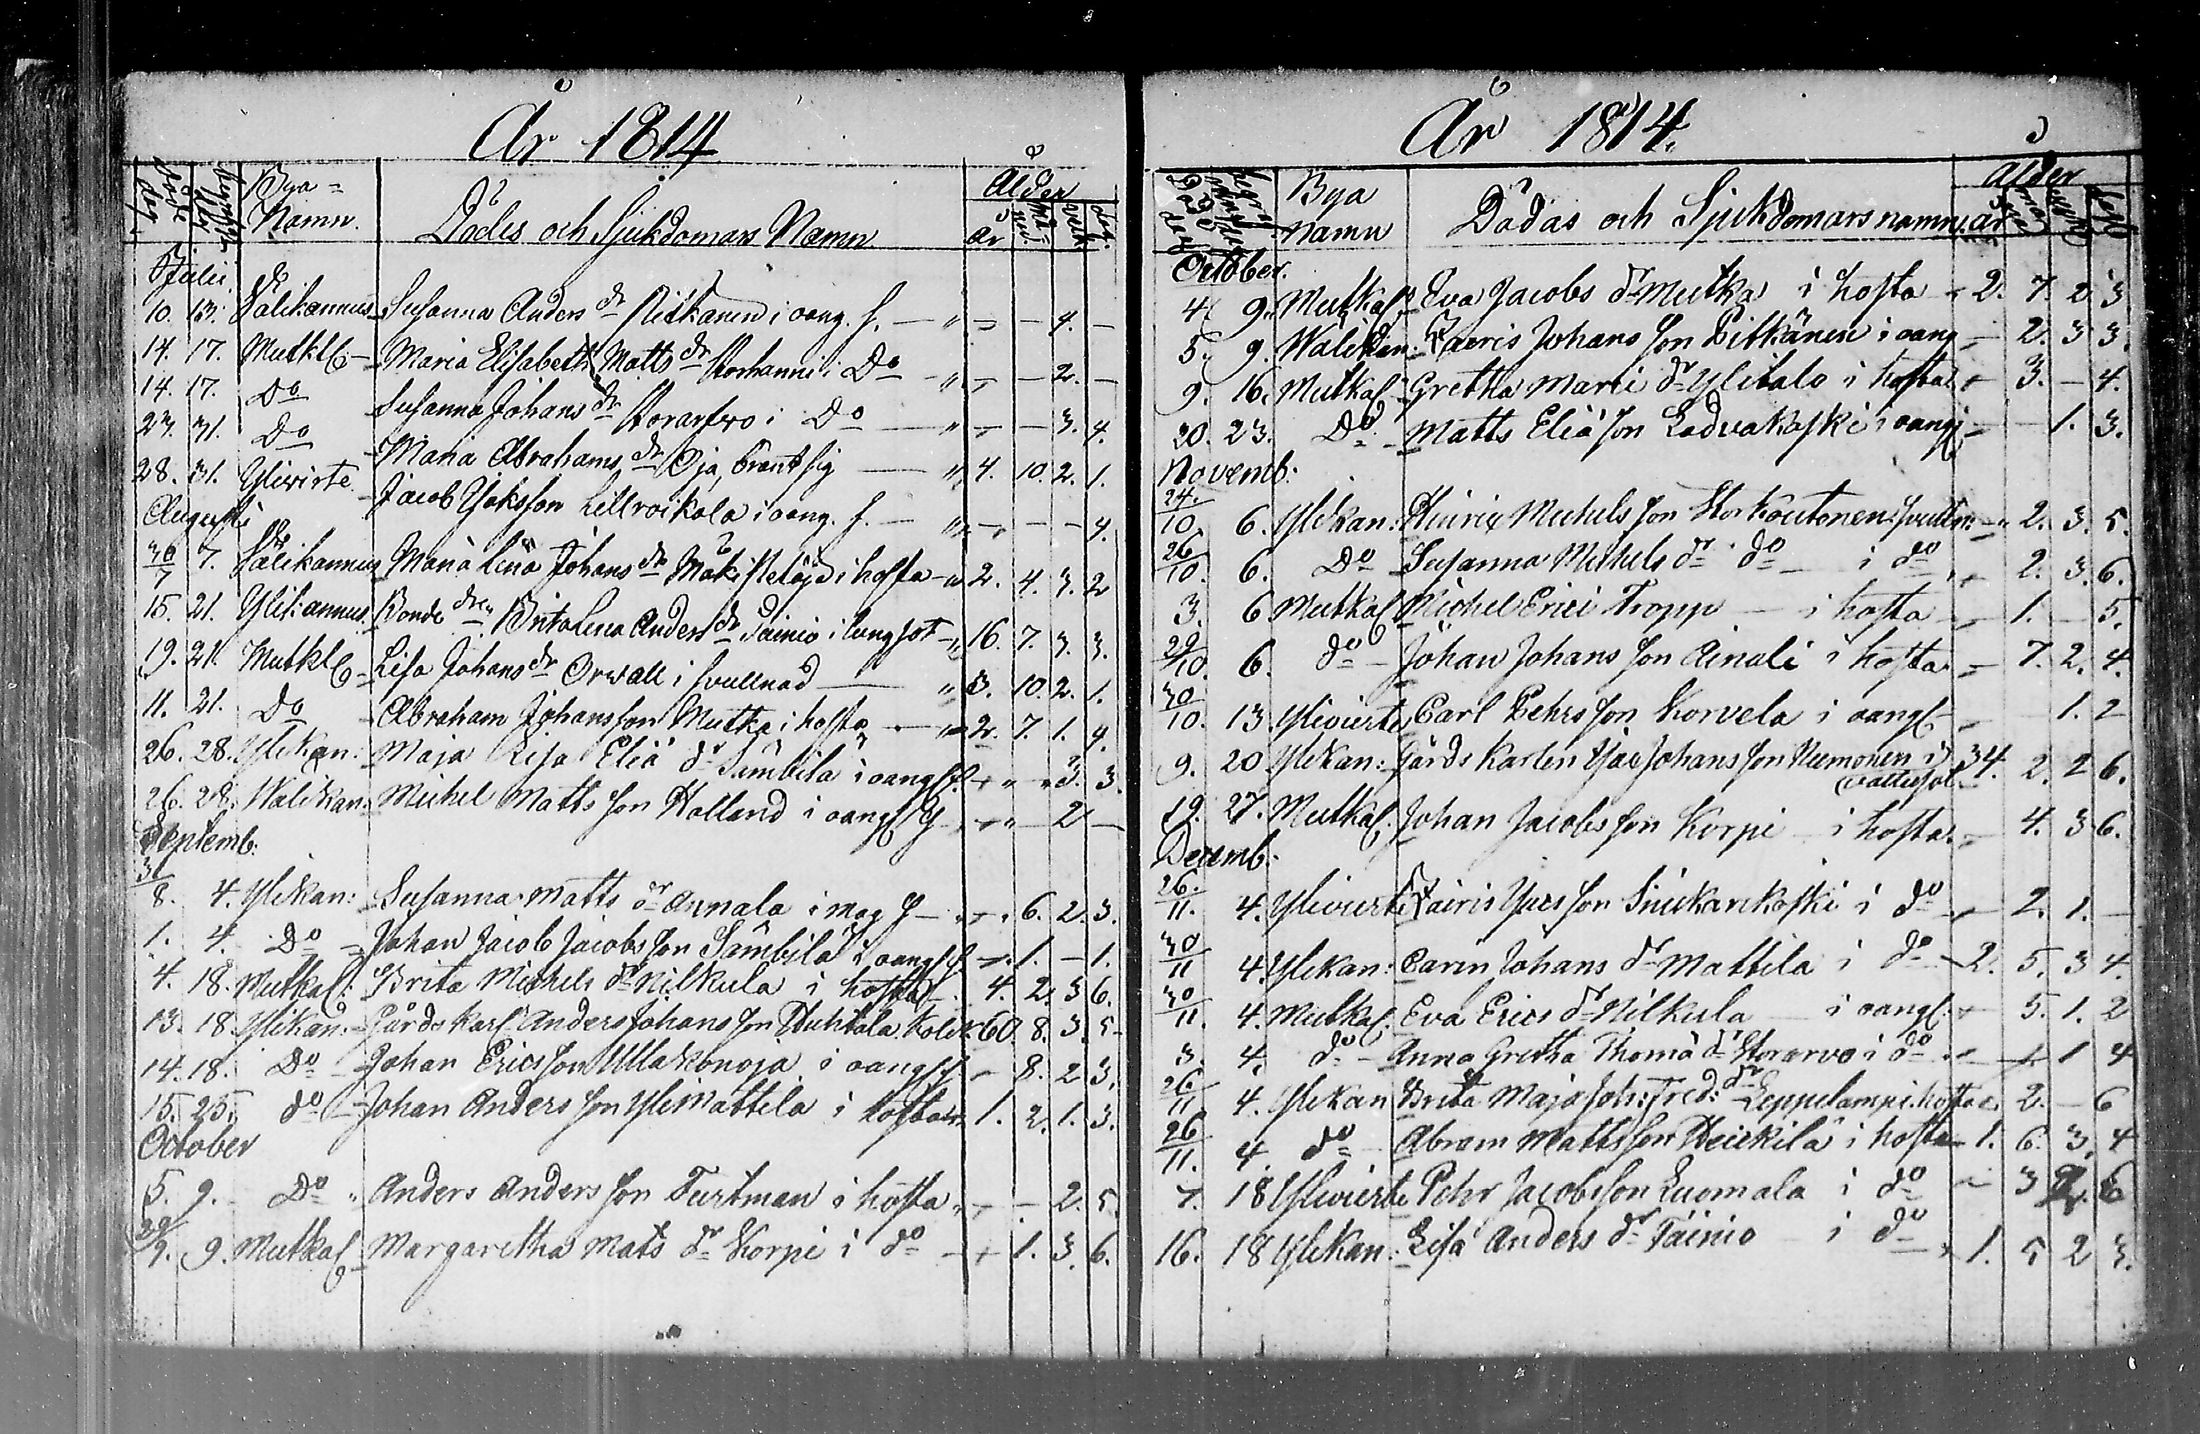 År 1814
Döde dag
Begrafn. dag
Bya-Namn.
Dödes och Sjukdomars Namn
Ålder
år
mån.
veck
dag.
Julii
10. 13. Wälikannus Susanna Anders dr Pitkänen i oang. s. — „ — — 4. —
14. 17. Mutkl. Maria Elisabeth Matts dr Storhanni i Do — „ — — 2. —
14. 17. Do Susanna Johans dr Storarfvo i Do — „ — — 3. 4.
23. 31. Do Maria Abrahams dr Oja, bränt sig — „ 4. 10. 2. 1.
28. 31. Yliwirte Jacob Jaksson Lillroikola i oang. s. — „ — — — 4.
Augusti
30/7 7. Wälikannus Maria Lena Johans dr Mäkistelöjd i hosta — 2. 4. 3. 2
15. 21. Ylikannus Bonde dr Brita Lena Anders dr Tainio i lungsot — 16. 7. 3. 3.
19. 21. Mutkl. Lisa Johans dr Orwall i svullnad — „ 3. 10. 2. 1.
11. 21. Do Abraham Johansson Mutka i hosta — 2. 7. 1. 4.
26. 28. Ylikan: Maja Lisa Eliæ dr Sämbilä i oang s. — „ „ 3. 3.
26. 28. Wälikan: Michel Matts son Holland i oang s — „ — 2 —
Septemb:
31/8. 4. Ylikan: Susanna Matts dr Annala i mag s — „ 6. 2. 3.
1. 4. Do Johan Jacob Jacobs son Sämbilä i oang s. — 1. — 1.
4. 18. Mutkal: Brita Michels dr Nilkula i hosta — 4. 2. 3 6.
13. 18. Ylikan: Gårdskarl Anders Johans son Huhtala kolik 60. 8. 3. 5
14. 18. Do Johan Erics son Ullakonoja i oang s — 8. 2 3.
15. 25. do Johan Anders son Ylimattila i hosta 1. 2. 1. 3.
October
5. 9. Do Anders Anders son Turtman i hosta — — 2. 5.
29/9. 9. Mutkal Margaretha Mats dr Korpi i do — 1. 3. 6.
År 1814.
Döda dag
begrafnings dag
Bya namn
Dödas och Sjukdomars namn
ålder
år
månad
veckor
dagar
October.
4. 9. Mutkal Eva Jacobs dr Mutka i hosta 2. 7. 2. 3
5. 9. Wälikan: Caeris Johans son Pitkänen i oang — 2. 3 3.
9. 16. Mutkal Gretha Marie dr Ylitalo i hosta — 3. — 4.
20. 23. Do Matts Eliæ son Ladvakoski i oangs — — 1. 3.
Novemb:
24./10. 6. Ylikan: Hinric Michels son Storkoutonen i svulln: — 2. 3. 5.
26/10. 6. Do Susanna Michels dr do i do — 2. 3. 6.
3. 6 Mutkal Michel Erici Tropp i hosta — 1. — 5.
29/10. 6. do Johan Johans son Ainali i hosta — 7. 2. 4.
30/10. 13 Ylivierte Carl Pehrs son Korvela i oangs — — 1. 2
9. 20 Ylikan: Gårds Karlen Isac Johans son Niemonen i vattusot 34. 2. 2 6.
19. 27. Mutkal. Johan Jacobs son Korpi i hosta — 4. 3 6.
Decemb:
26./11. 4. Ylivierte Isacs son Sniekarikoski i do — 2. 1. —
30/11 4. Ylikan: Carin Johans dr Mattila i do — 2. 5. 3 4.
30/11. 4. Mutkal: Eva Erics dr Nilkula i oangs: — 5. 1. 2
3. 4. do Anna Gretha Thomæ dr Storarvo i do — — 1 4
26./11 4. Ylikan Brita Maja Joh: Fred: dr Leppilampi hosta 2. — 6
26/11. 4 do Abram Mattsson Heickilä i hosta — 1. 6. 3. 4
7. 18 Ylivierte Pehr Jacobsson Luomala i do — 3 2. 6
16. 18 Ylikan: Lisa Anders dr Täinio i do — 1. 5 2 3.